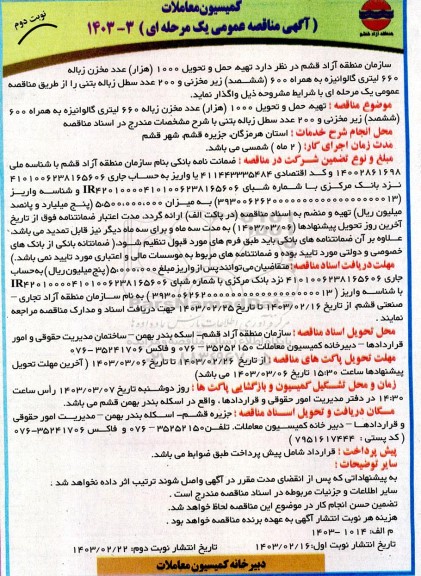 کمیسیون معاملات
( آگهی مناقصه عمومی یک مرحله ای ) ۳-۱۴۰۳
نوبت دوم
سازمان منطقه آزاد قشم در نظر دارد تهیه حمل و تحویل ۱۰۰۰ (هزار) عدد مخزن زباله
۶۶۰ لیتری گالوانیزه به همراه ۶۰۰ (ششصد) زیر مخزنی و ۲۰۰ عدد سطل زباله بتنی را از طریق مناقصه
عمومی یک مرحله ای با شرایط مشروحه ذیل واگذار نماید.
موضوع مناقصه : تهیه حمل و تحویل ۱۰۰۰ (هزار) عدد مخزن زباله ۶۶۰ لیتری گالوانیزه به همراه ۶۰۰
(ششصد) زیر مخزنی و ۲۰۰ عدد سطل زباله بتنی با شرح مشخصات مندرج در اسناد مناقصه
محل انجام شرح خدمات : استان هرمزگان، جزیره قشم، شهر قشم
مدت زمان اجرای کار: ( ۲ ماه ) شمسی می باشد.
مبلغ و نوع تضمین شرکت در مناقصه : ضمانت نامه بانکی بنام سازمان منطقه آزاد قشم با شناسه ملی
۱۴۰۰۲۸۶۱۶۹۸ و کد اقتصادی ۴۱۱۴۴۳۳۳۵۴۸۴ یا واریز به حساب جاری ۴۱۰۱۰۰۶۲۳۸۱۶۵۶۰۶
نزد بانک مرکزی با شماره شبای IR۴۲۰۱۰۰۰۰۴۱۰۱۰۰۶۲۳۸۱۶۵۶۰۶ و شناسه واریز
به میزان ۵،۵۰۰،۰۰۰،۰۰۰ (پنج میلیارد و پانصد
میلیون ریال) تهیه و منضم به اسناد مناقصه (در پاکت الف) ارائه گردد. مدت اعتبار ضمانتنامه فوق از تاریخ
آخرین روز تحویل پیشنهادها (۱۴۰۳/۰۳/۰۶) به مدت سه ماه و برای سه ماه دیگر نیز قابل تمدید می باشد.
علاوه بر آن ضمانتنامه های بانکی باید طبق فرم های مورد قبول تنظیم شود، (ضمانتانه بانکی از بانک های
خصوصی و دولتی مورد تایید بوده و ضمانتنامه های مربوط به موسسات مالی و اعتباری مورد تایید نمی باشد.)
مهلت دریافت اسناد مناقصه: متقاضیان می توانند پس از واریز مبلغ ۵،۰۰۰،۰۰۰ (پنج میلیون ریال) به حساب
جاری ۴۱۰۱۰۰۶۲۳۸۱۶۵۶۰۶ نزد بانک مرکزی با شماره شبای IR۴۲۰۱۰۰۰۰۴۱۰۱۰۰۶۲۳۸۱۶۵۶۰۶
با شناسه واریز به نام سازمان منطقه آزاد تجاری –
صنعتی قشم، از تاریخ ۱۴۰۳/۰۲/۱۶ تا تاریخ ۱۴۰۳/۰۲/۲۵ جهت دریافت اسناد و مدارک مناقصه مراجعه
نمایند .
محل تحویل اسناد مناقصه : سازمان منطقه آزاد قشم- اسکه بندر بهمن- ساختمان مدیریت حقوقی و امور
قراردادها - دبیرخانه کمیسیون معاملات ۳۵۲۵۲۱۵۰ - ۰۷۶ و فاکس ۳۵۲۴۱۷۰۶ - ۰۷۶
مهلت تحویل پاکت های مناقصه : از تاریخ ۱۴۰۳/۰۲/۲۶ تا تاریخ ۱۴۰۳/۰۳/۰۶ ( آخرین مهلت تحویل
پیشنهادها ساعت ۱۵:۳۰ تاریخ ۱۴۰۳/۰۳/۰۶ می باشد)
زمان و محل تشکیل کمیسیون و بازگشایی پاکت ها : روز دوشنبه تاریخ ۱۴۰۳/۰۳/۰۷ رأس ساعت
۱۴:۳۰ در دفتر مدیریت امور حقوقی و قراردادها ، واقع در اسکله بندر بهمن قشم می باشد.
مسکان دریافت و تحویل اسناد مناقصه : جزیره قشم- اسکله بندر بهمن - مدیریت امور حقوقی
و قراردادها – دبیر خانه کمیسیون معاملات. تلفن ۳۵۲۵۲۱۵۰- ۰۷۶ و فاکس ۳۵۲۴۱۷۰۶-۰۷۶
( کد پستی : ۷۹۵۱۶۱۷۴۴۴ )
پیش پرداخت : قرارداد شامل پیش پرداخت طبق ضوابط می باشد.
سایر توضیحات :
به پیشنهاداتی که پس از انقضای مدت مقرر در آگهی واصل شوند ترتیب اثر داده نخواهد شد .
سایر اطلاعات و جزئیات مربوطه در اسناد مناقصه مندرج است .
تضمین حسن انجام کار در موضوع این مناقصه لحاظ خواهد شد.
هزینه هر نوبت انتشار آگهی به عهده برنده مناقصه خواهد بود .
م الف: ۱۰۱۴ - ۱۴۰۳
تاریخ انتشار نوبت اول: ۱۴۰۳/۰۲/۱۶ تاریخ انتشار نوبت دوم: ۱۴۰۳/۰۲/۲۲
دبیرخانه کمیسیون معاملات